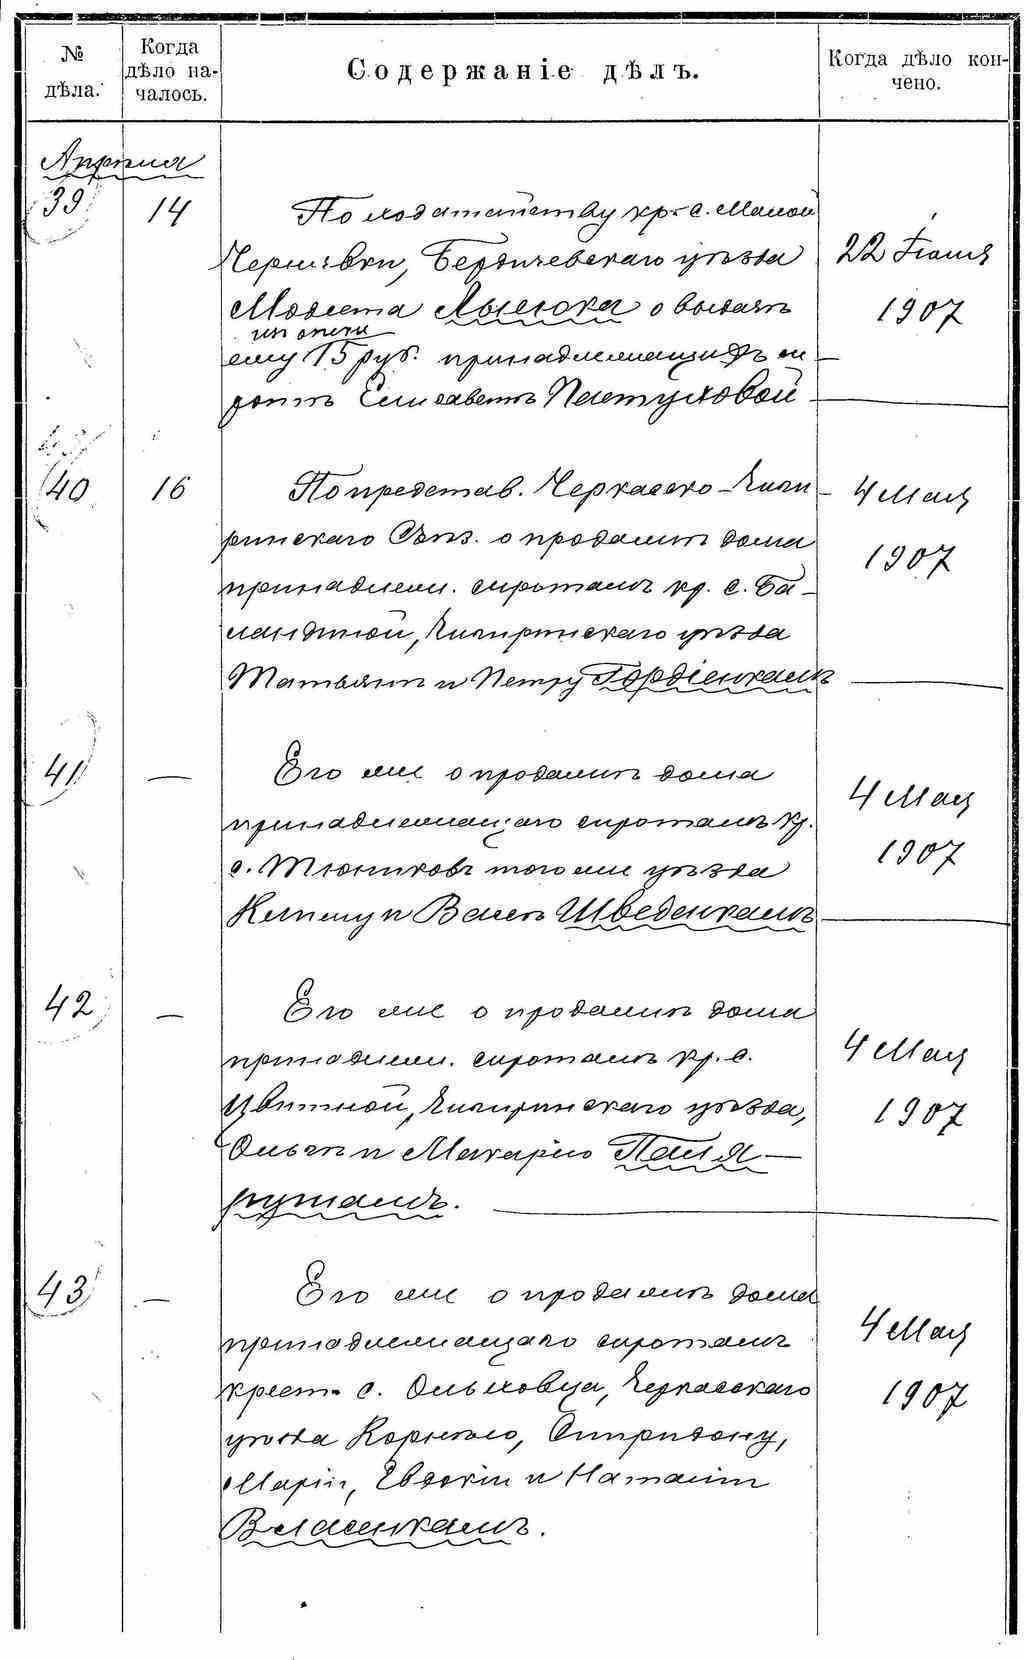 № дѣла.
Когда дѣло началось.
Содержаніе дѣлъ.
Когда дѣло кончено.
Апрѣля
39
14
По ходатайству кр. с. Малой
Чернявки, Бердичевскаго уѣзда
Модеста Лысюка о выдачѣ
изъ опеки
ему 15 руб. принадлежащихъ си
ротѣ Елисаветѣ Пастуховой
22 Іюня
1907
40
16
По представ. Черкасско-Чиги
ринскаго Съѣз. о продажѣ дома
принадлеж. сиротамъ кр. с. Ба-
ландиной, Чигиринскаго уѣзда
Татьянѣ и Петру Гордіенкамъ
4 Мая
1907
41
—
Его же о продажѣ дома
принадлежащаго сиротамъ кр.
с. Тюньковъ того же уѣзда
Климу и Васѣ Шведенкамъ
4 Мая
1907
42
—
Его же о продажѣ дома
принадлеж. сиротамъ кр. с.
Цвитной, Чигиринскаго уѣзда,
Ольгѣ и Макарію
4 Мая
1907
43
—
Его же о продажѣ дома
принадлежащаго сиротамъ
крест. с. Ольховца, Черкасскаго
уѣзда Корнѣю, Спиридону,
Маріи, Евдокіи и Наталіи
Власенкамъ.
4 Мая
1907